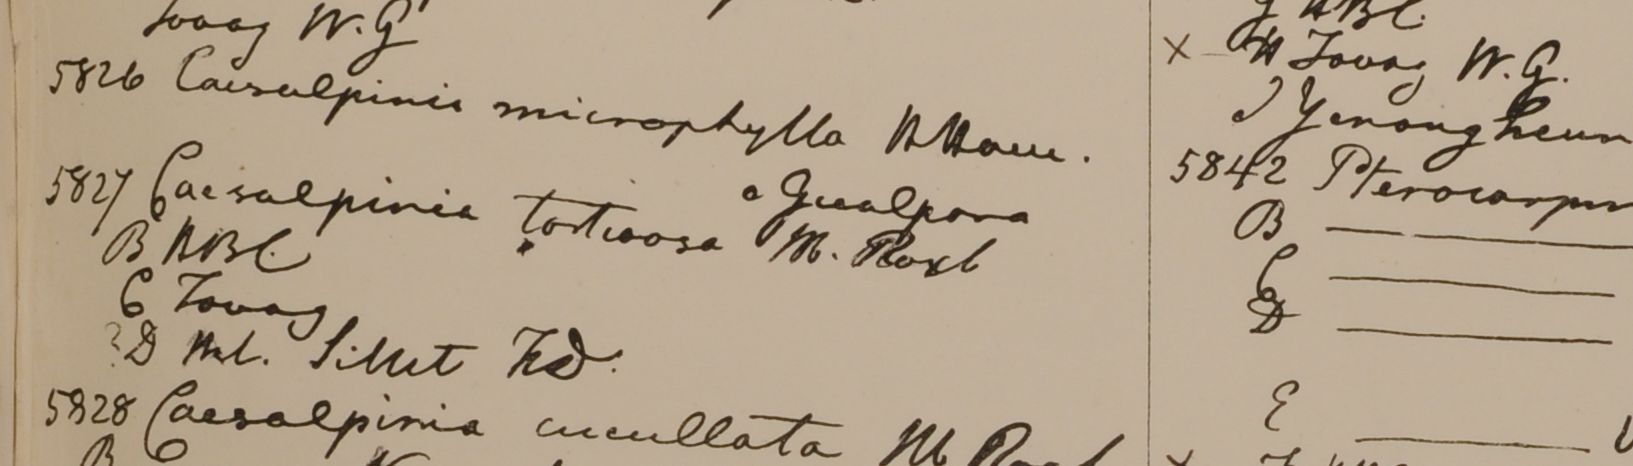 Tovoy W. G
5826 Caesalpinia microphylla H Ham.
5827 Caesalpinia tortuosa a Goalpara M. Roxb
B HBC.
C Tavoy
?D Hb. Sillet FD.
5828 Caesalpinia cucullata M Roxb
B
HBC.
x H Tavoy W. G.
J Yenangheun
5842 Pterocarpu
B
C
D
E